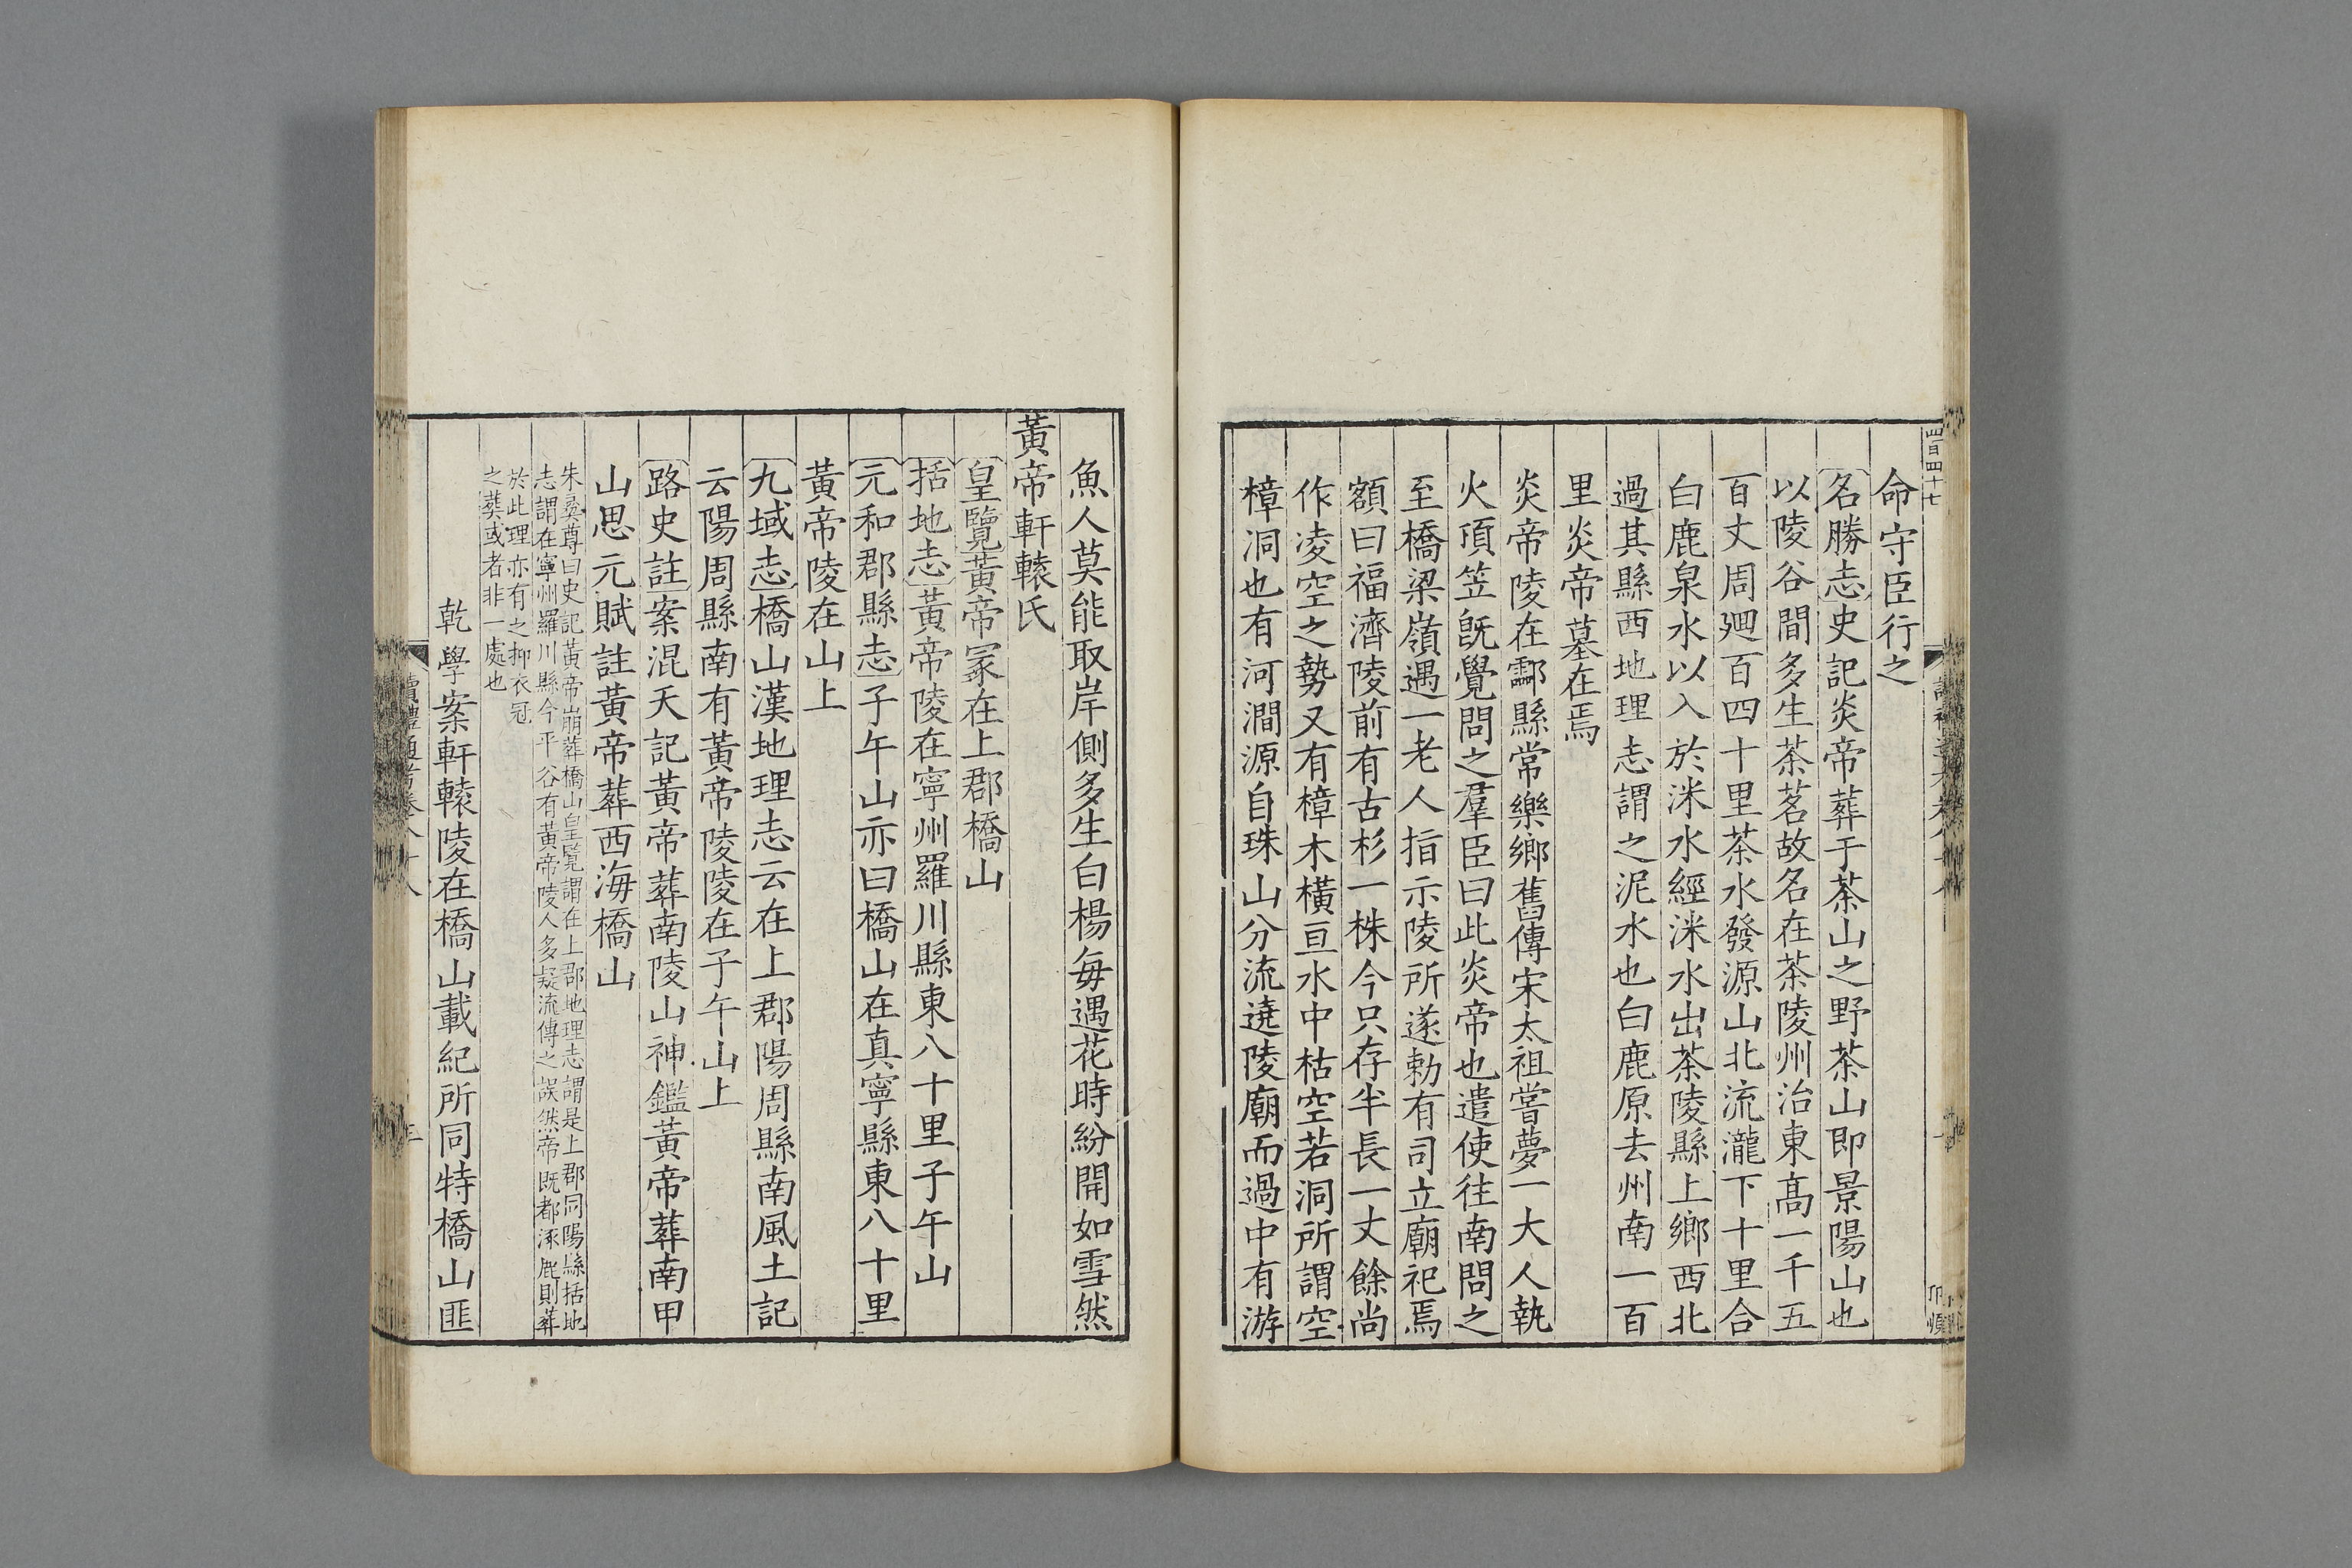 四百四十七
命守臣行之
名勝志史記炎帝葬于茶山之野茶山即景陽山也
以陵谷間多生茶茗故名在茶陵州治東高一千五
百丈周廻百四十里茶水發源山北流瀧下十里合
白鹿泉水以入於洣水水經洣水出茶陵縣上鄉西北
過其縣西地理志謂之泥水也白鹿原去州南一百
里炎帝墓在焉
炎帝陵在酃縣常樂鄉舊傳宋太祖嘗夢一大人執
火頂笠既覺問之羣臣曰此炎帝也遣使往南問之
至橋梁嶺遇一老人指示陵所遂勅有司立廟祀焉
額曰福濟陵前有古杉一株今只存半長一丈餘尚
作凌空之勢又有樟木橫亘水中枯空若洞所謂空
樟洞也有河澗源自珠山分流遶陵廟而過中有游
魚人莫能取岸側多生白楊每遇花時紛開如雪然
黃帝軒轅氏
皇覽黃帝冢在上郡橋山
括地志黃帝陵在寧州羅川縣東八十里子午山
元和郡縣志子午山亦曰橋山在真寧縣東八十里
黃帝陵在山上
九域志橋山漢地理志云在上郡陽周縣南風土記
云陽周縣南有黃帝陵陵在子午山上
路史註案混天記黃帝葬南陵山神鑑黃帝葬南甲
山思元賦註黃帝葬西海橋山
朱彝尊曰史記黃帝崩葬橋山皇覽謂在上郡地理志謂是上郡同陽縣括地
志謂在寧州羅川縣今平谷有黃帝陵人多疑流傳之誤然帝既都涿鹿則葬
於此理亦有之抑衣冠
之葬或者非一處也
乾學案軒轅陵在橋山載紀所同特橋山匪
讀禮通考卷八十八